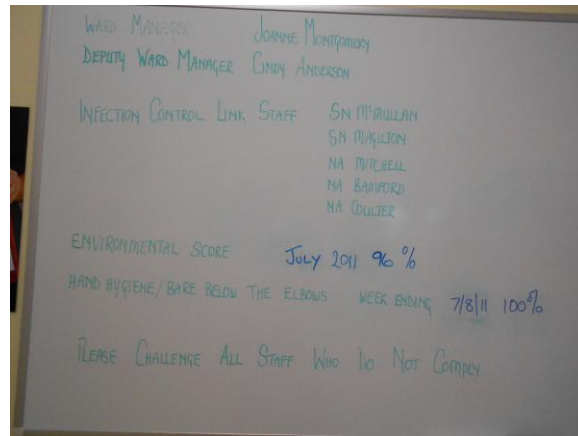 WARD MANAGER JOANNE MONTGOMERY
DEPUTY WARD MANAGER CINDY ANDERSON
INFECTION CONTROL LINK STAFF SN McMULLAN
SN MAGILTON
NA MITCHELL
NA BAMFORD
NA COULTER
ENVIRONMENTAL SCORE JULY 2011 96 %
HAND HYGIENE/BARE BELOW THE ELBOWS WEEK ENDING 7/8/11 100%
PLEASE CHALLENGE ALL STAFF WHO DO NOT COMPLY